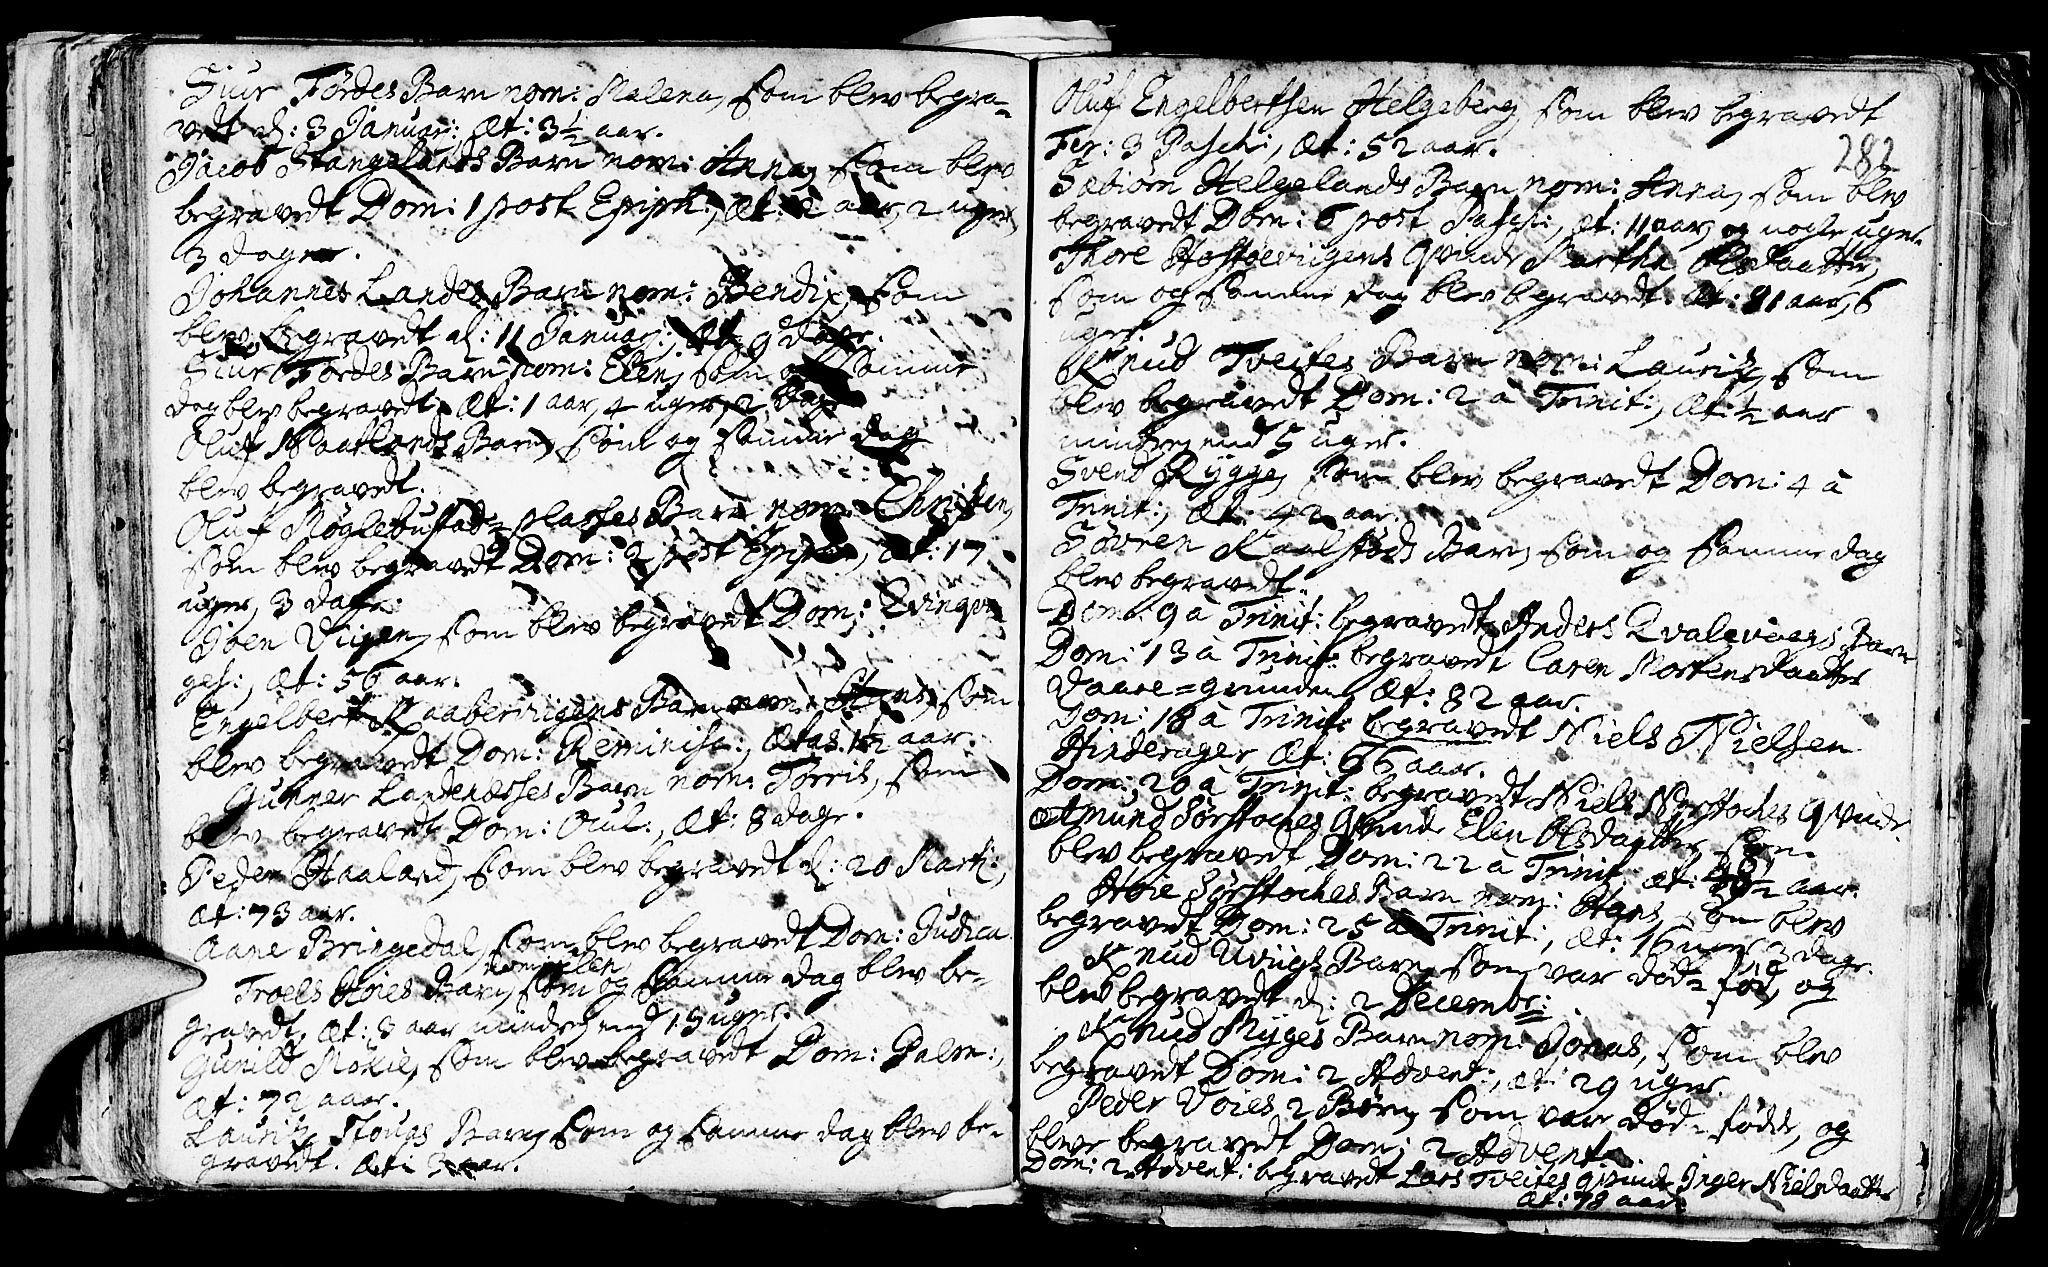 Siur Fördes Barn nom: Malena, som blev begra-
vedt d: 3 Januar: Æt: 3½ aar.
Jacob Stangelands Barn nom: Anna, som blev
begravedt Dom: 1 post Epiph:, Æt: 2 aar, 2 uger,
3 dager.
Johannes Landes Barn nom: Bendix, som
blev begravedt d: 11 Januar:, Æt: 9 dage.
Siur Fördes Barn nom: Elen, som og samme
dag blev begravedt, Æt: 1 aar, 4 uger, 2 dage
Oluf Waatlands Barn, som og samme dag
blev begravedt.
Oluf Møglebustad-plasses Barn nom: Christen,
som blev begravedt Dom: 2 post Epiph:, Æt: 17
uger, 3 dage.
Joen Viigen, som blev begravedt Dom: Qvinqva
ges:, Æt: 56 aar.
Engelbert Raaberviigens Barn nom:, som
blev begravedt Dom: Reminisc:, Ætas. 1½ aar.
Gunner Landenæsses Barn nom: Torris, som
blev begravedt Dom: Ocul:, Æt: 8 dage.
Peder Haaland, som blev begravedt d: 20 Marti:,
Æt: 73 aar.
Aane Bringedal, som blev begravedt Dom: Judica
nom: Elen
Troels Høies Barn, som og samme dag blev be-
gravedt, Æt: 8 aar mindre end 15 uger.
Gunild Mokie, som blev begravedt Dom: Palm:,
Æt: 72 aar.
Lauritz Stougs Barn, som og samme dag blev be-
gravedt. Æt: 3 aar.
282
Oluf Engelbertsen Helgeberg, som blev begravedt
Fer: 3 Pasch:, Æt: 52 aar.
Sæbiørn Helgelands Barn nom: Anna, som blev
begravedt Dom: 6 post Pasch:, Æt: 11 aar, og nogle uger.
Thore Hostøeviigens Qvinde Martha Olsdaatter,
som og samme dag blev begravedt. Æt: 81 aar, 6
uger
Knud Tveites Barn nom: Lauritz, som
blev begravedt Dom: 2 à Trinit:, Æt: ½ aar
mindre end 5 uger.
Svend Rygge, som blev begravedt Dom: 4 à
Trinit:, Æt: 42 aar.
Søvren Kaalstøds Barn, som og samme dag
blev begravedt.
Dom: 9 à Trinit: begravedt Anders Qvalevaags Barn
Dom: 13 à Trinit: begravedt Caren Mortensdaatter
Daare-grunden, Æt: 82 aar.
Dom: 18 à Trinit: begravedt Niels Nielsen
Hinderager, Æt: 66 aar.
Dom: 20 à Trinit: begravedt Niels Nørstoches Qvinde
Amund Sørstoches Qvinde Elen Olsdaatter, som
blev begravedt Dom: 22 à Trinit. Æt: aar.
Høie Sørstoches Barn nom: Hans, som blev
begravedt Dom: 25 à Trinit:, Æt: 16 uger, 3 dage.
Knud Uviigs Barn, som var død-fød, og
blev begravedt d: 2 Decembr:
Knud Myges Barn nom: Jonas, som blev
begravedt Dom: 2 Advent:, Æt: 29 uger.
Peder Voies 2 Børn, som vare død-fødde, og
bleve begravedt Dom: 2 Advent.
Dom: 2 Advent: begravedt Lars Tveites Qvinde Inger Nielsdaatter
Æt: 78 aar.